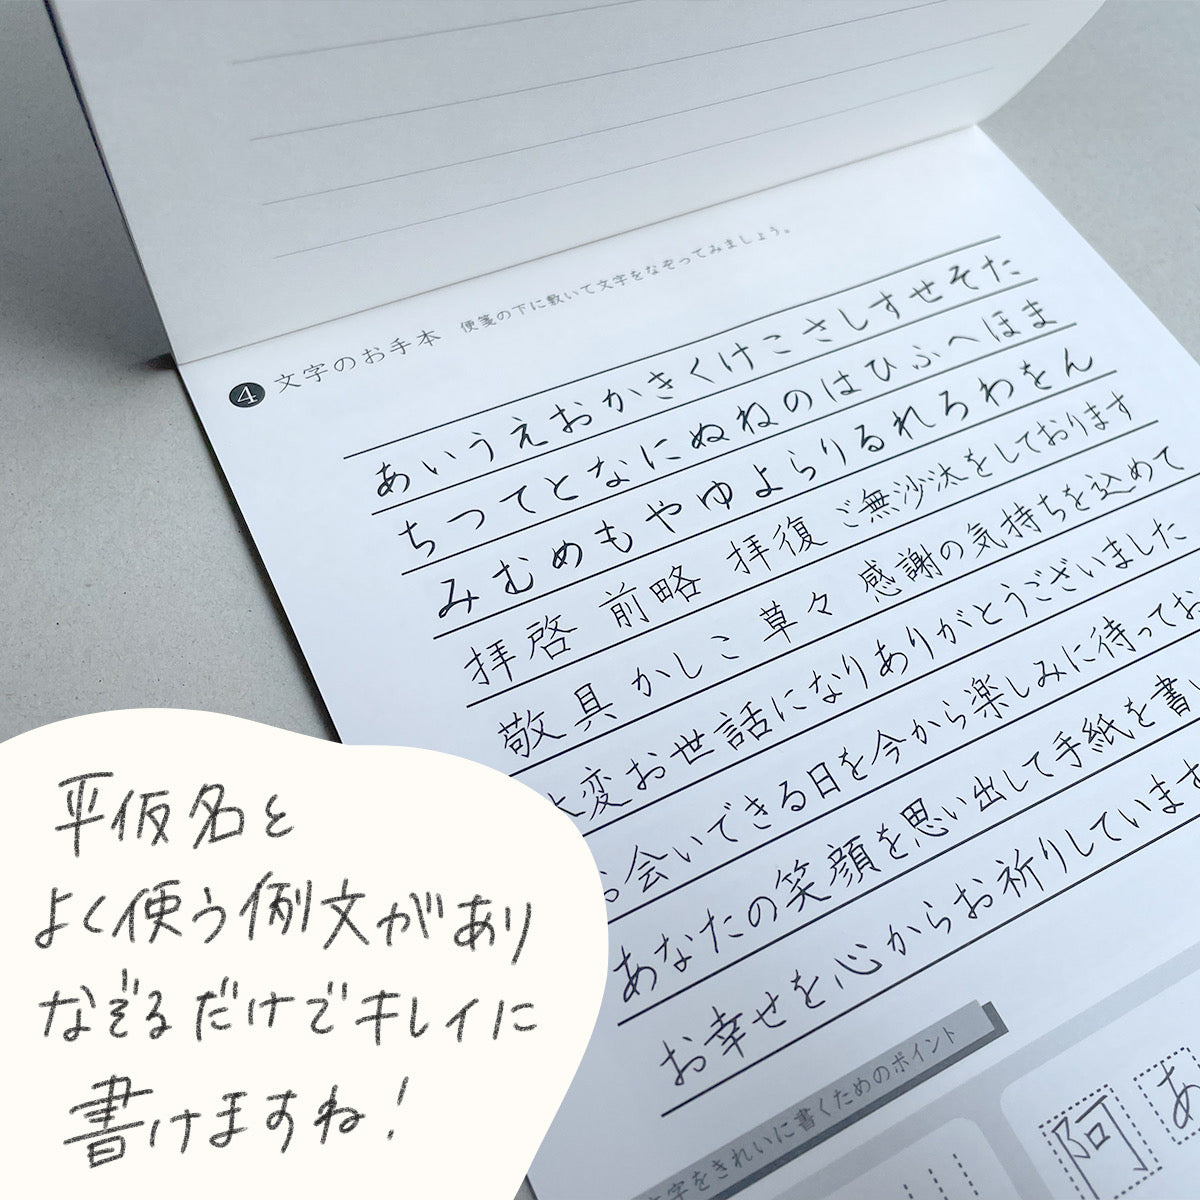 4 文字のお手本 便箋の下に敷いて文字をなぞってみましょう。
あいうえおかきくけこさしすせそた
ちつてとなにぬねのはひふへほま
みむめもやゆよらりるれろわをん
拝啓 前略 拝復 ご無沙汰をしております
敬具 かしこ 草々 感謝の気持ちを込めて
変お世話になりありがとうございました
会いできる日を今から楽しみに待ってお
あなたの笑顔を思い出して手紙を書い
お幸せを心からお祈りしています
文字をきれいに書くためのポイント
阿 あ
平仮名と
よく使う例文があり
なぞるだけでキレイに
書けますね!